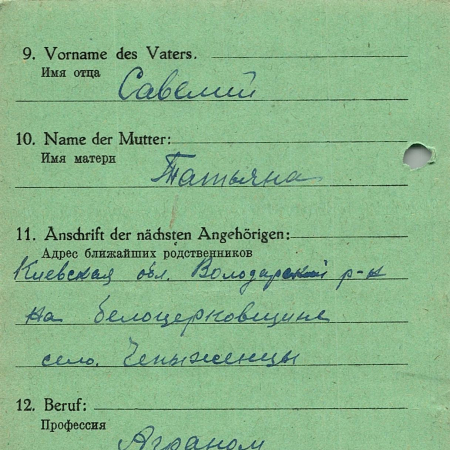 9. Vorname des Vaters.
Имя отца
Савелий
10. Name der Mutter:
Имя матери
Татьяна
11. Anschrift der nächsten Angehörigen:
Адрес ближайших родственников
Киевская обл. Володарский р-н
на белоцерковщине
село. Чепыженцы
12. Beruf:
Профессия
Аграном